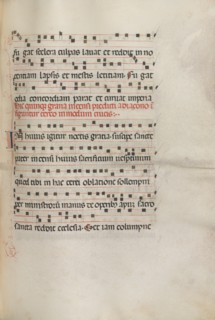 fu gat scelera culpas lavat et reddit in no
centiam lapsis et mestis letitiam Fu gat
odia concordiam parat et curvat imperia
Hic quinque grana incensi
figuntur cereo in modum crucis
In huius igitur noctis gratia suscipe sancte
pater incensi huius sacrificium vespertinum
quod tibi in hac cerei oblatione sollempni
per ministrorum manus de operibus apum sacro
sancta reddit ecclesia Set iam columpne